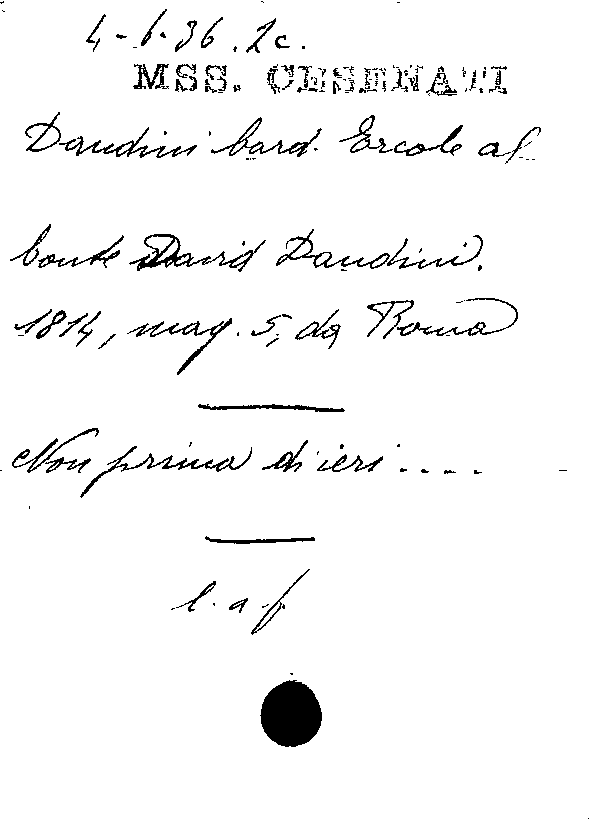 4-6-36.2c.
MSS. CESENATI
Dandini Card. Ercole al
Conte David Dandini.
1814, mag. 5, da Roma
Non prima di ieri....
l. a. f.